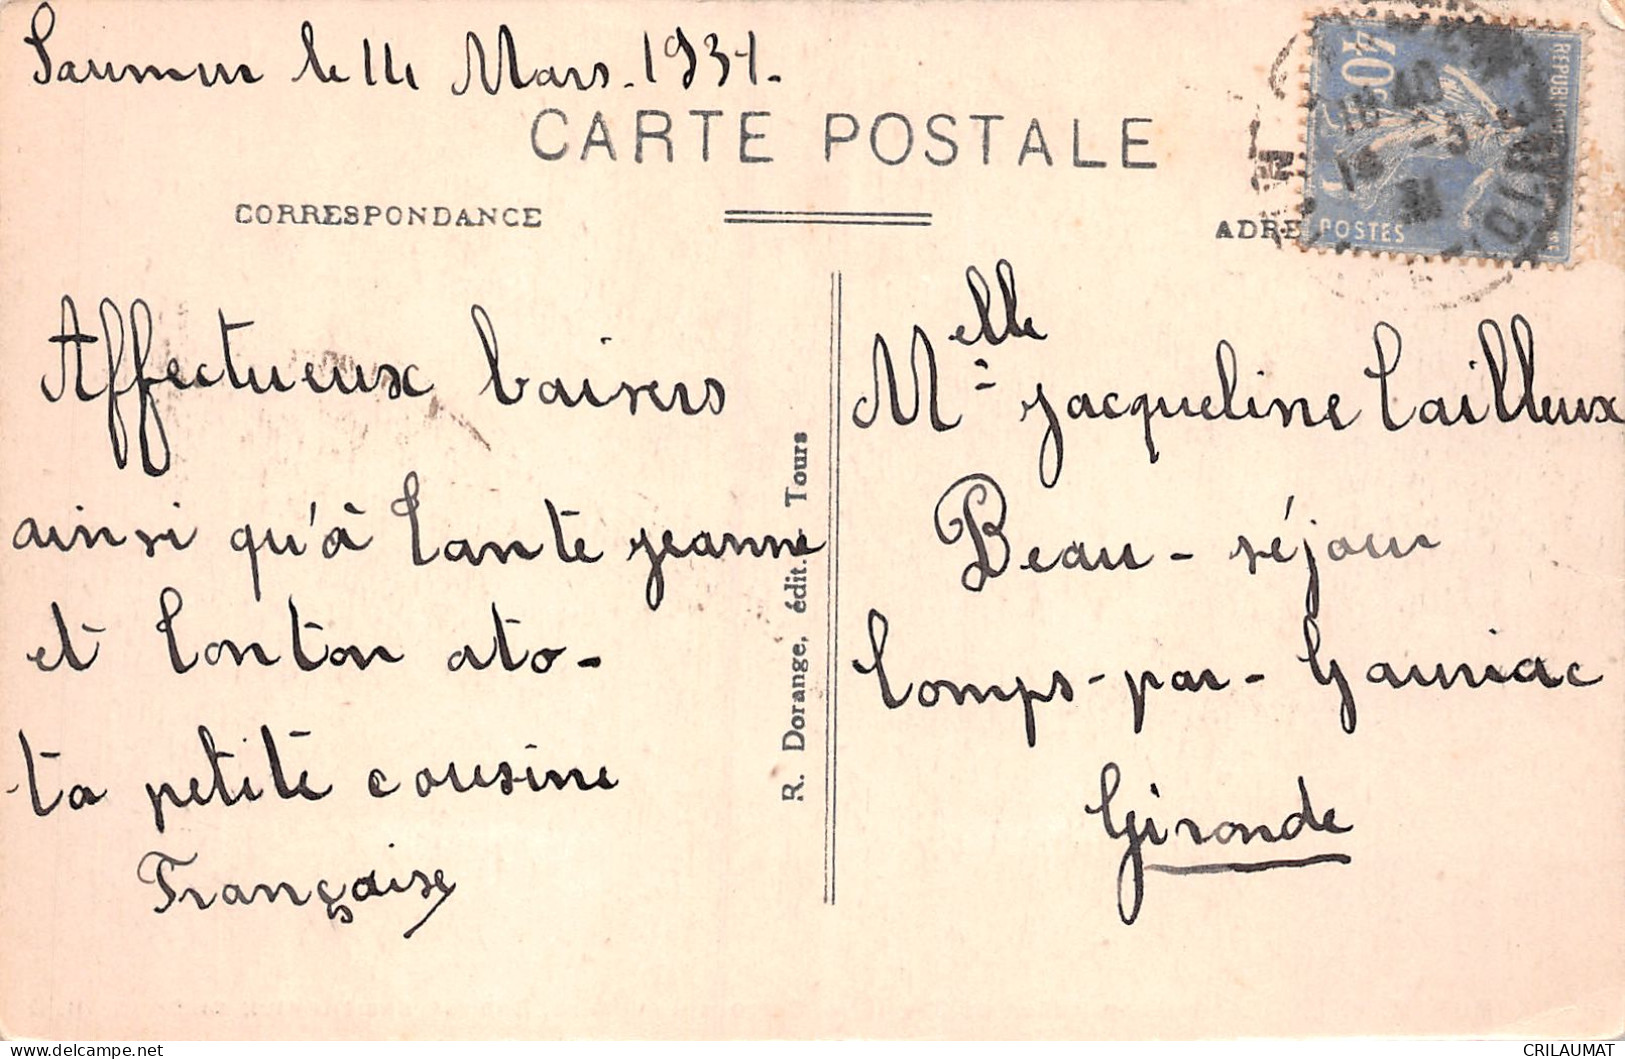 Saumur le 14 Mars. 1931.
CARTE POSTALE
CORRESPONDANCE
ADRE
40c
REPUB
POSTES
18 40
14 -3
31
Affectueux baisers
ainsi qu'à Tante Jeanne
et Tonton ato-
ta petite cousine
Française
R. Dorange, édit. Tours
Melle Jacqueline Tailleux
Beau-séjour
Comps-par-Gauriac
Gironde
CRILAUMAT